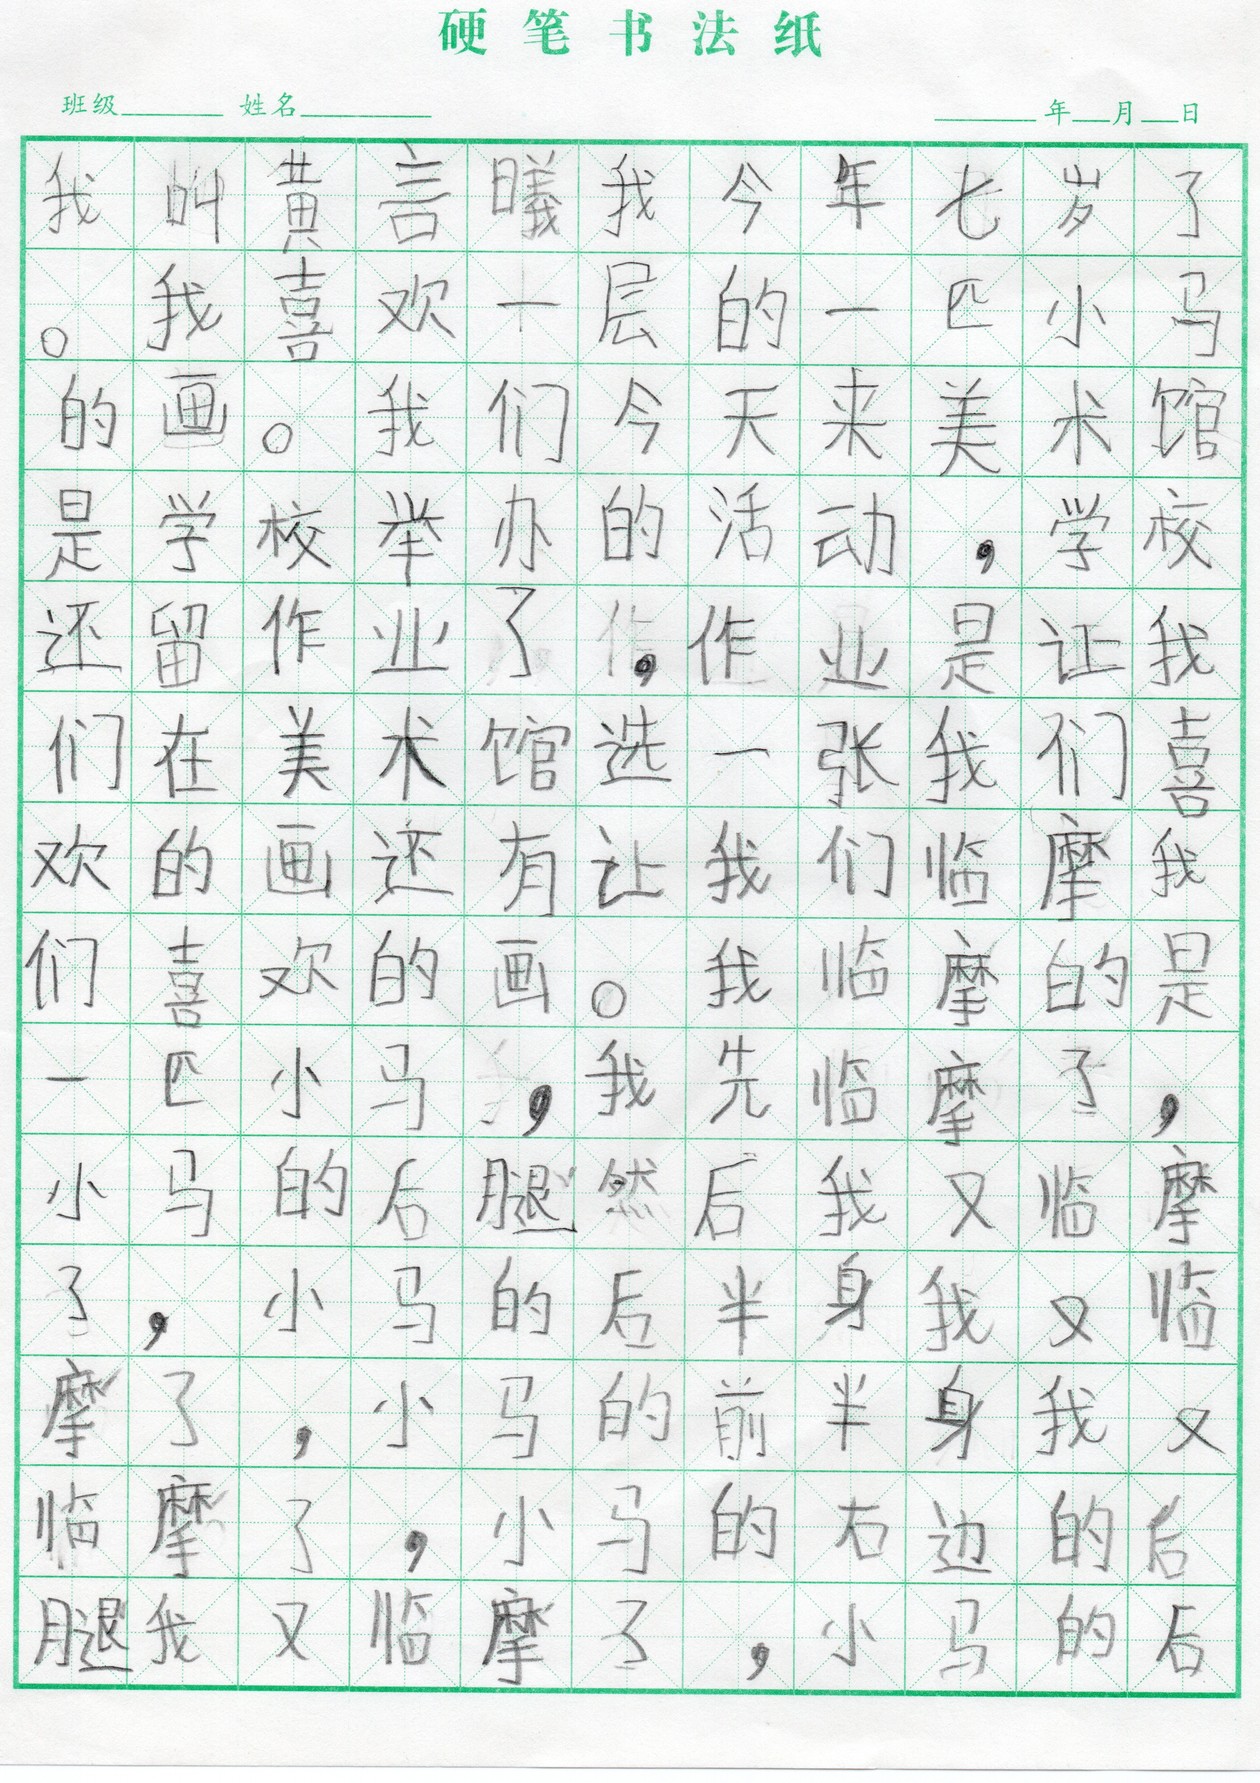 硬笔书法纸
班级 姓名 年 月 日
我叫黄言曦我今年七岁了
。我喜欢一层的一匹小马
的画。我们今天来美术馆
是学校举办的活动，学校
还留作业了，作业是让我
们在美术馆选一张我们喜
欢的画还有让我们临摩我
们喜欢的画。我临摩的是
一匹小马，我先临摩了，
小马的后腿然后我又临摩
了，小马的后半身我又临
摩了，小马的前半身我又
临摩了，小马的右边的后
腿我又临摩了，小马的后